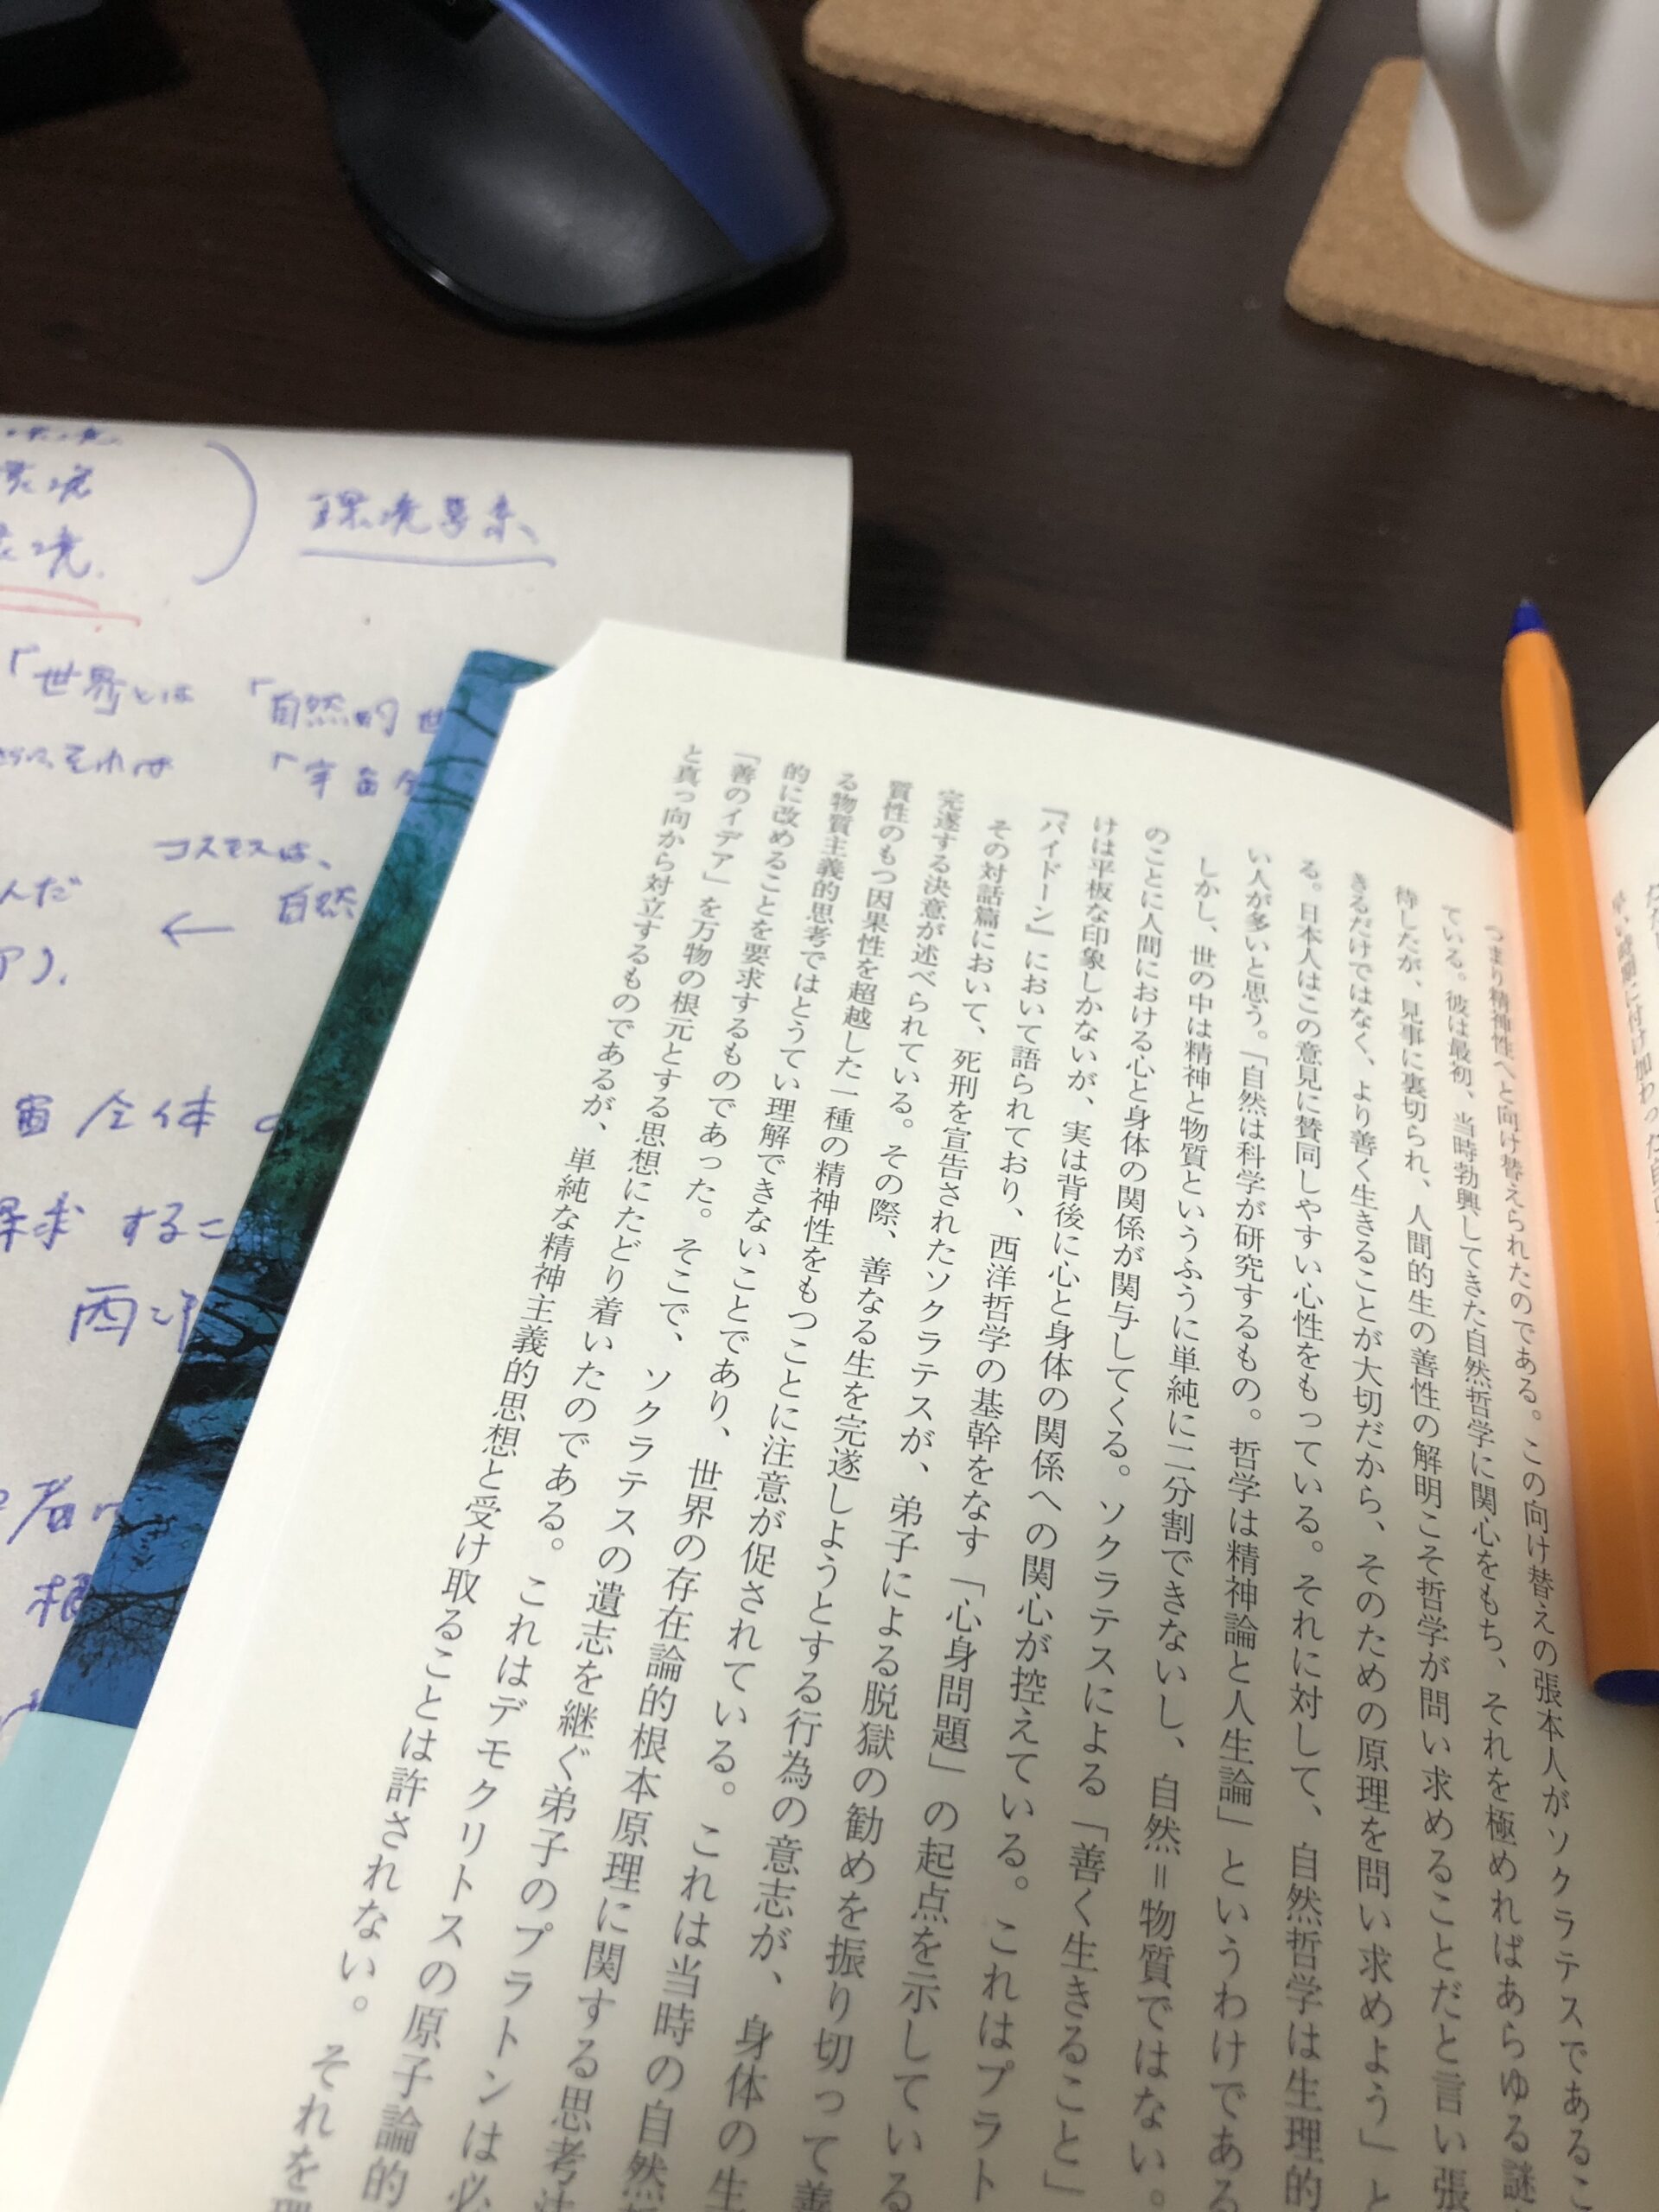 つまり精神性へと向け替えられたのである。この向け替えの張本人がソクラテスであるこ
ている。彼は最初、当時勃興してきた自然哲学に関心をもち、それを極めればあらゆる謎
待したが、見事に裏切られ、人間的生の善性の解明こそ哲学が問い求めることだと言い張
きるだけではなく、より善く生きることが大切だから、そのための原理を問い求めよう」と
る。日本人はこの意見に賛同しやすい心性をもっている。それに対して、自然哲学は生理的
い人が多いと思う。「自然は科学が研究するもの。哲学は精神論と人生論」というわけである
しかし、世の中は精神と物質というふうに単純に二分割できないし、自然=物質ではない。
のことに人間における心と身体の関係が関与してくる。ソクラテスによる「善く生きること」
けは平板な印象しかないが、実は背後に心と身体の関係への関心が控えている。これはプラト
『パイドーン』において語られており、西洋哲学の基幹をなす「心身問題」の起点を示している
その対話篇において、死刑を宣告されたソクラテスが、弟子による脱獄の勧めを振り切って善
完遂する決意が述べられている。その際、善なる生を完遂しようとする行為の意志が、身体の生
質性のもつ因果性を超越した一種の精神性をもつことに注意が促されている。これは当時の自然
る物質主義的思考ではとうてい理解できないことであり、世界の存在論的根本原理に関する思考
的に改めることを要求するものであった。そこで、ソクラテスの遺志を継ぐ弟子のプラトンは必
「善のイデア」を万物の根元とする思想にたどり着いたのである。これはデモクリトスの原子論的
と真っ向から対立するものであるが、単純な精神主義的思想と受け取ることは許されない。それを
環境
環境
「世界とは「自然的世
それは「宇宙全
コスモスは、
んだ ← 自然
ア).
宙全体の
探求するこ
西洋
者